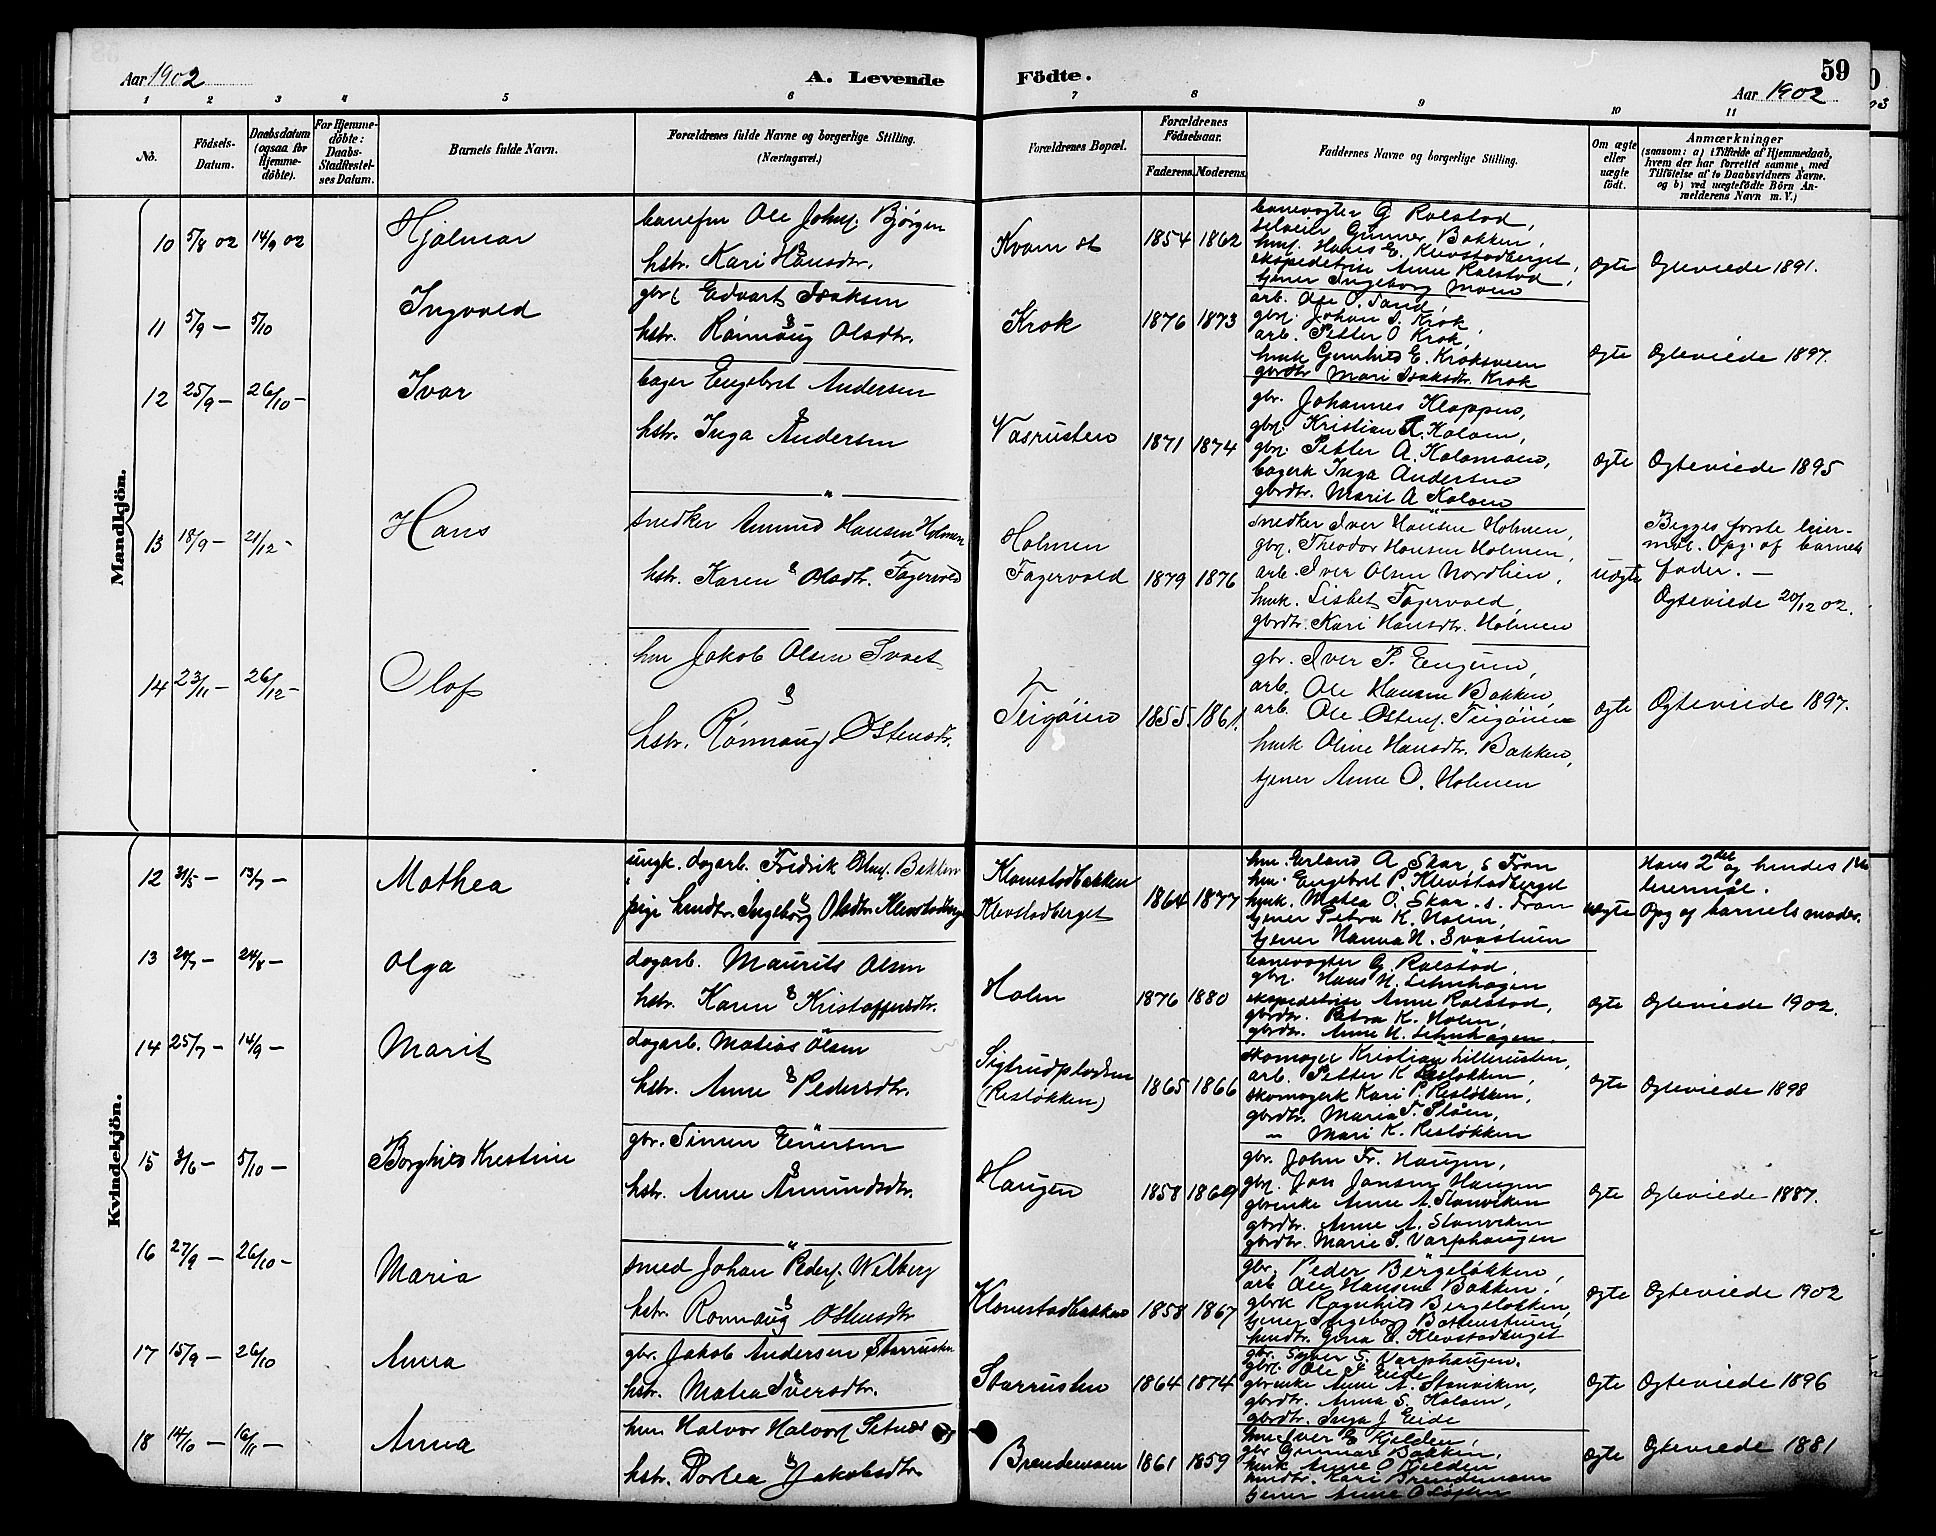 Aar 1902
A. Levende
Födte.
59
Aar 1902
1 2 3 4 5 6 7 8 9 10 11
No.
Födsels-
Datum.
Daabsdatum
(ogsaa for
Hjemme-
döbte).
For Hjemme-
döbte:
Daabs-
Stadfæstel-
ses Datum.
Barnets fulde Navn.
Forældrenes fulde Navne og borgerlige Stilling.
(Næringsvei.)
Forældrenes Bopæl.
Forældrenes
Födselsaar.
Faderens. Moderens.
Faddernes Navne og borgerlige Stilling.
Om ægte
eller
uægte
födt.
Anmærkninger
(saasom: a) i Tilfælde af Hjemmedaab,
hvem der har forrettet samme, med
Tilföielse af to Daabsvidners Navne.
og b) ved uægtefödte Börn An-
melderens Navn m. V.)
Mandkjön.
10 5/8 02 14/9 02
Hjalmar
banefm Ole Johns. Bjørgen
&
hstr. Kari Hansdtr.
Kvam st
1854 1862
banevogter G Ralstad,
Gunner Bakken,
hmf. Hans E. Klevstadberget,
ekspeditrise Anne Ralstad,
tjener Ingeborg Moen
ægte
Ægteviede 1891.
11 5/9 — 5/10
Ingvald
gbrf Edvart Isaksen
&
hstr. Rønnaug Olsdtr.
Krok
1876 1873
arb. Ole O. Sand,
gbrf. Johan I. Krok,
arb. Petter O Krok,
hmk Gunhild E. Kroksveen
gbrdtr Mari Isaksdtr. Krok
ægte
Ægteviede 1897.
12 25/9 — 26/10 —
Ivar
bager Engebret Andersen
&
hstr. Inga Andersen
Vasrusten
1871 1874
gbr. Johannes Kloppen,
gbrf. Kristian A. Kolaen,
gbrf. Petter A. Kolomoen,
bagerk Inga Andersen
gbrdtr. Marit A Koloen
ægte
Ægteviede 1895
13 18/9 — 21/12 —
Hans
snedker Amund Hansen Holmen
&
hstr. Karen Olsdtr. Fagervold
Holmen
Fagervold
1879 1876
snedker Iver Hansen Holmen,
gbrf. Theodor Hansen Holmen,
arb. Iver Olsen Nordlien,
hmk. Lisbet Fagervold,
gbrdtr. Kari Hansdtr. Holmen
uægte
Begges første leier-
mål. Opg. af barnets
fader. —
Ægteviede 20/12 02.
14 23/11 — 26/12 —
Olof
hm Jakob Olsen Tvæt
&
hstr. Rønnaug Østensdtr.
Teigøien
1855 1861.
gbr. Iver P. Engum,
arb. Ole Hansen Bakken,
arb. Ole Østens. Teigøien
hmk Oline Hansdtr. Bakken,
tjener Anne O. Holmen
ægte
Ægteviede 1897.
Kvindekjön.
12 31/5 — 13/7 —
Mathea
ungk. dagarb. Fredrik Olsen Bakken
&
pige hmdtr. Ingeborg Olsdtr. Klevstadberget
Klomstadbakken
Klevstadberget
1864 1877
hm. Erland A Skar, s Fron
hm. Engebret P. Klevstadberget
hmk. Matea O. Skar. s. Fron
tjener Petra K. Holm,
tjener Hanna H. Svastuen
uægte
Hans 2det og hendes 1ste
leiermål.
Opg af barnets moder.
13 20/7 — 24/8 —
Olga
dagarb. Maurits Olsen
&
hstr. Karen Kristoffersdtr.
Holm
1876 1880
banevogter G. Ralstad.
gbrf. Hans H. Lehnhagen
ekspeditrise Anne Ralstad,
gbrdtr. Petra K. Holm,
gbrdtr. Anne H. Lehnhagen.
ægte
Ægteviede 1902.
14 25/7 — 14/9 —
Marit
dagarb. Matias Olsen
&
hstr. Anne Pedersdtr.
Sigtrudpladsen
(Resløkken)
1865 1866
skomager Kristian Lillerusten,
arb. Petter K Resløkken,
skomagerk Kari P. Resløkken,
gbrdtr. Maria T. Sløen,
— Mari K. Resløkken
ægte
Ægteviede 1898
15 3/6 — 5/10 —
Borghild Kristine
gbr. Simen Enersen
&
hstr. Anne Amundsdtr.
Haugen
1858 1869
gbr. John Fr. Haugen,
gbrf. Jon Jansen Haugen
gbrenke Anne A. Stanviken
gbrdtr. Anne A. Stanviken
gbrdtr. Marie S. Varphaugen
ægte
Ægteviede 1887.
16 27/9 — 26/10 —
Maria
smed Johan Peders. Wilberg
&
hstr. Rønnaug Østensdtr
Klomstadbakken
1858 1867
gbr. Peder Bergeløkken,
arb Ole Hansen Bakken,
gbrk Ragnhild Bergeløkken,
tjener Ingeborg Bottenstuen,
hmdtr. Gina E. Klevstadberget
ægte
Ægteviede 1902
17 15/9 — 26/10
Anna
gbr. Jakob Andersen Storrusten
hstr. Matea Iversdtr.
Storrusten
1864 1874
gbr. Syver S. Varphaugen.
gbrf. Ole J. Eide
gbrenke Anne A. Stanviken,
gbrdtr. Anna S. Kolaen,
gbrdtr. Inga J Eide
ægte
Ægteviede 1896
18 14/10 — 16/11 —
Anna
hm Halvor Halvors
&
hstr. Dortea Jakobsdtr.
Brendemoen
1861 1859
hm Iver E Kjelden,
gbr Gunnar Bakken,
hmk Anne O Kjelden
hmdtr. Kari Brendemoen
tjener Anne O Løften
ægte
Ægteviede 1881